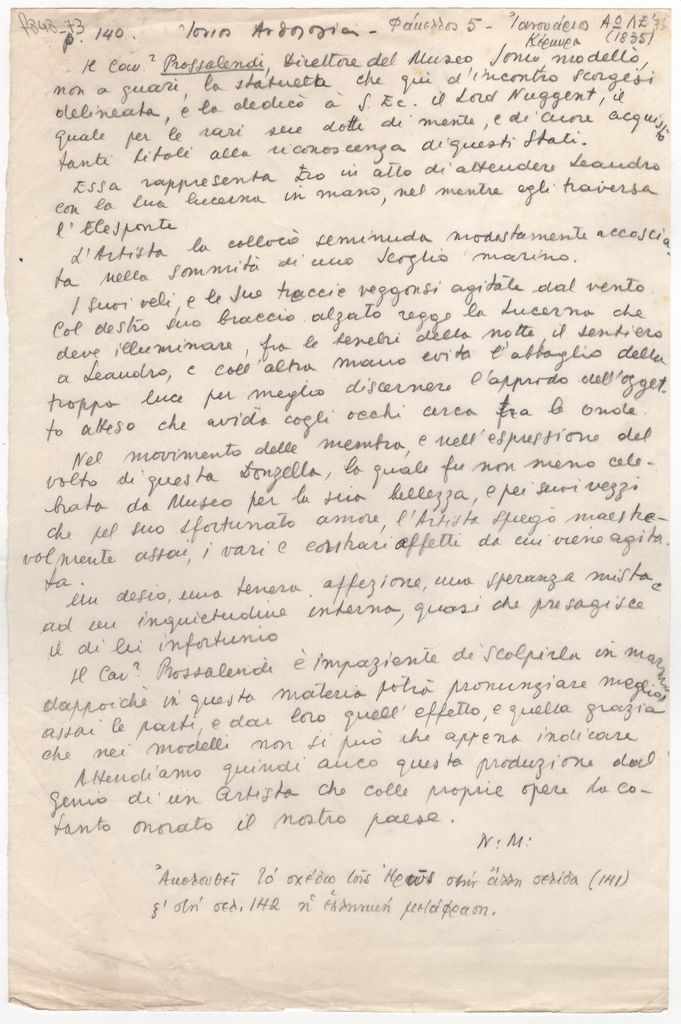 p. 140. Ἰόνιος Ἀνθολογία - Φάκελλος 5 - Ἰανουάριος ΑΩΛΕ
Κέρκυρα (1835)
Il Cav.e Prossalendi, Direttore del Museo Ionio, modellò,
non a guari, la statuetta che qui d'incontro scorgesi
delineata, e la dedicò à S. Ec. il Lord Nuggent, il
quale per le rari sue dotti di mente, e di cuore acquistò
tanti titoli alla riconoscenza di questi Stati.
Essa rappresenta Ero in atto di attendere Leandro
con la sua lucerna in mano, nel mentre egli traversa
l'Elesponte
L'Artista la collocò seminuda modestamente accoscia-
ta nella sommità di uno Scoglio marino.
I suoi veli, e le sue traccie veggonsi agitate dal vento
Col destro suo braccio alzato regge la Lucerna che
deve illuminare, fra le tenebri della notte il sentiero
a Leandro, e coll'altra mano evita l'abbaglio della
troppa luce per meglio discernere l'approdo dell'ogget-
to atteso che avida cogli occhi cerca fra le onde.
Nel movimento delle membra, e nell'espressione del
volto di questa Donzella, la quale fu non meno cele-
brata da Museo per la sua bellezza, e pei suoi vezzi
che pel suo sfortunato amore, l'Artista spiegò maestre-
volmente assai, i vari e contrari affetti da cui viene agita-
ta.
Un desio, una tenera affezione, una speranza mista
ad un inquietudine interna, quasi che presagisce
il di lui infortunio
Il Cav.e Prossalendi è impaziente di scolpirla in marmo
dappoichè in questa materia potrà pronunziare meglio
assai le parti, e dar loro quell'effetto, e quella grazia
che nei modelli non si può che appena indicare
Attendiamo quindi anco questa produzione dal
genio di un Artista che colle proprie opere ha co-
tanto onorato il nostro paese.
N: M:
Ἀκολουθεῖ τό σχέδιο τῆς Ἡροῦς στήν ἄλλη σελίδα (141)
κ' στή σελ. 142 ἡ ἑλληνική μετάφραση.